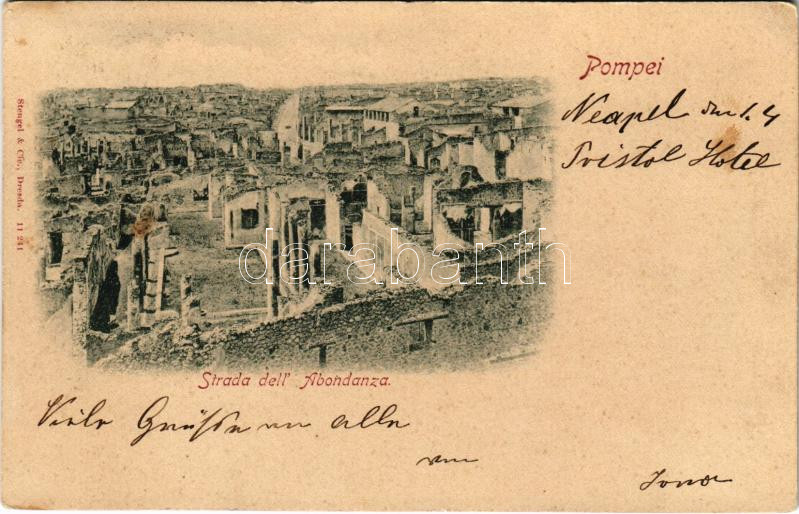 Pompei
Neapel den 1. 4
Bristol Hotel
Stengel & Cie., Dresda. 11 241
darabanth
Strada dell' Abondanza.
Viele Grüsse an alle
von